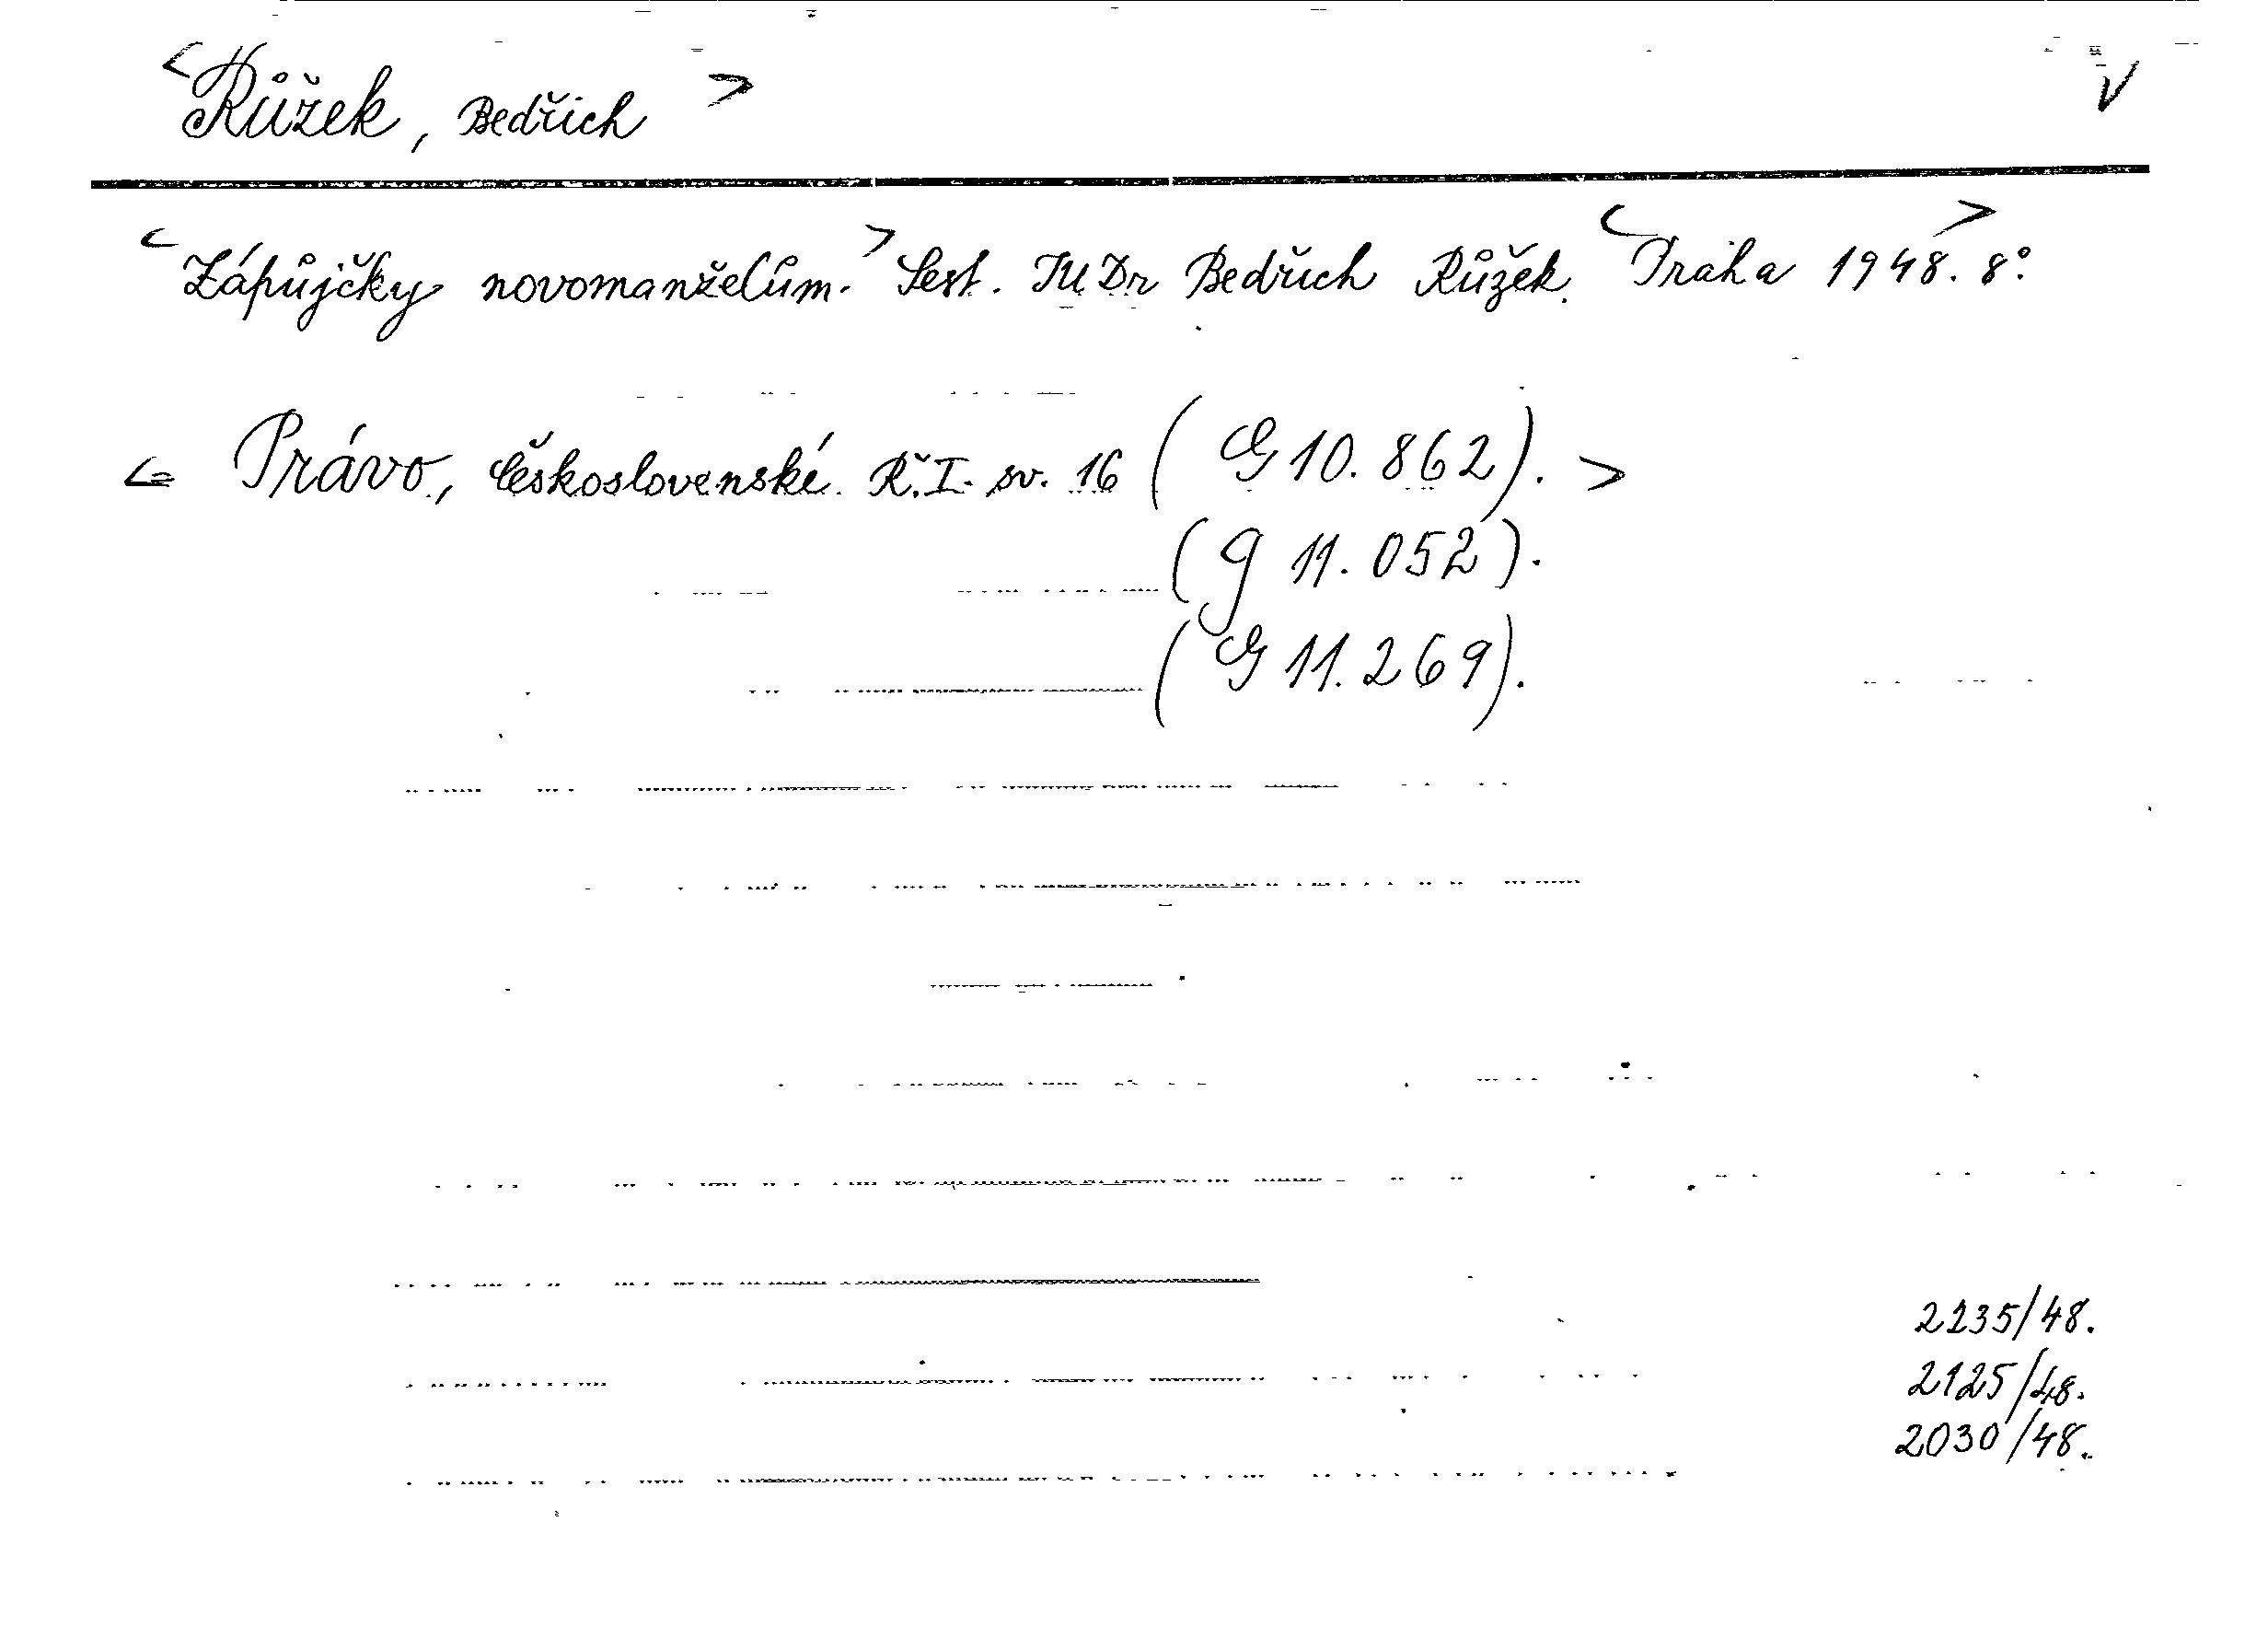 <Růžek, Bedřich> V
<Zápůjčky novomanželům.> Sest. JUDr Bedřich Růžek. <Praha 1948.> 8°.
<Právo, československé. Ř. I. sv. 16 (G 10.862).>
(G 11.052).
(G 11.269).
2235/48.
2125/48.
2030/48.